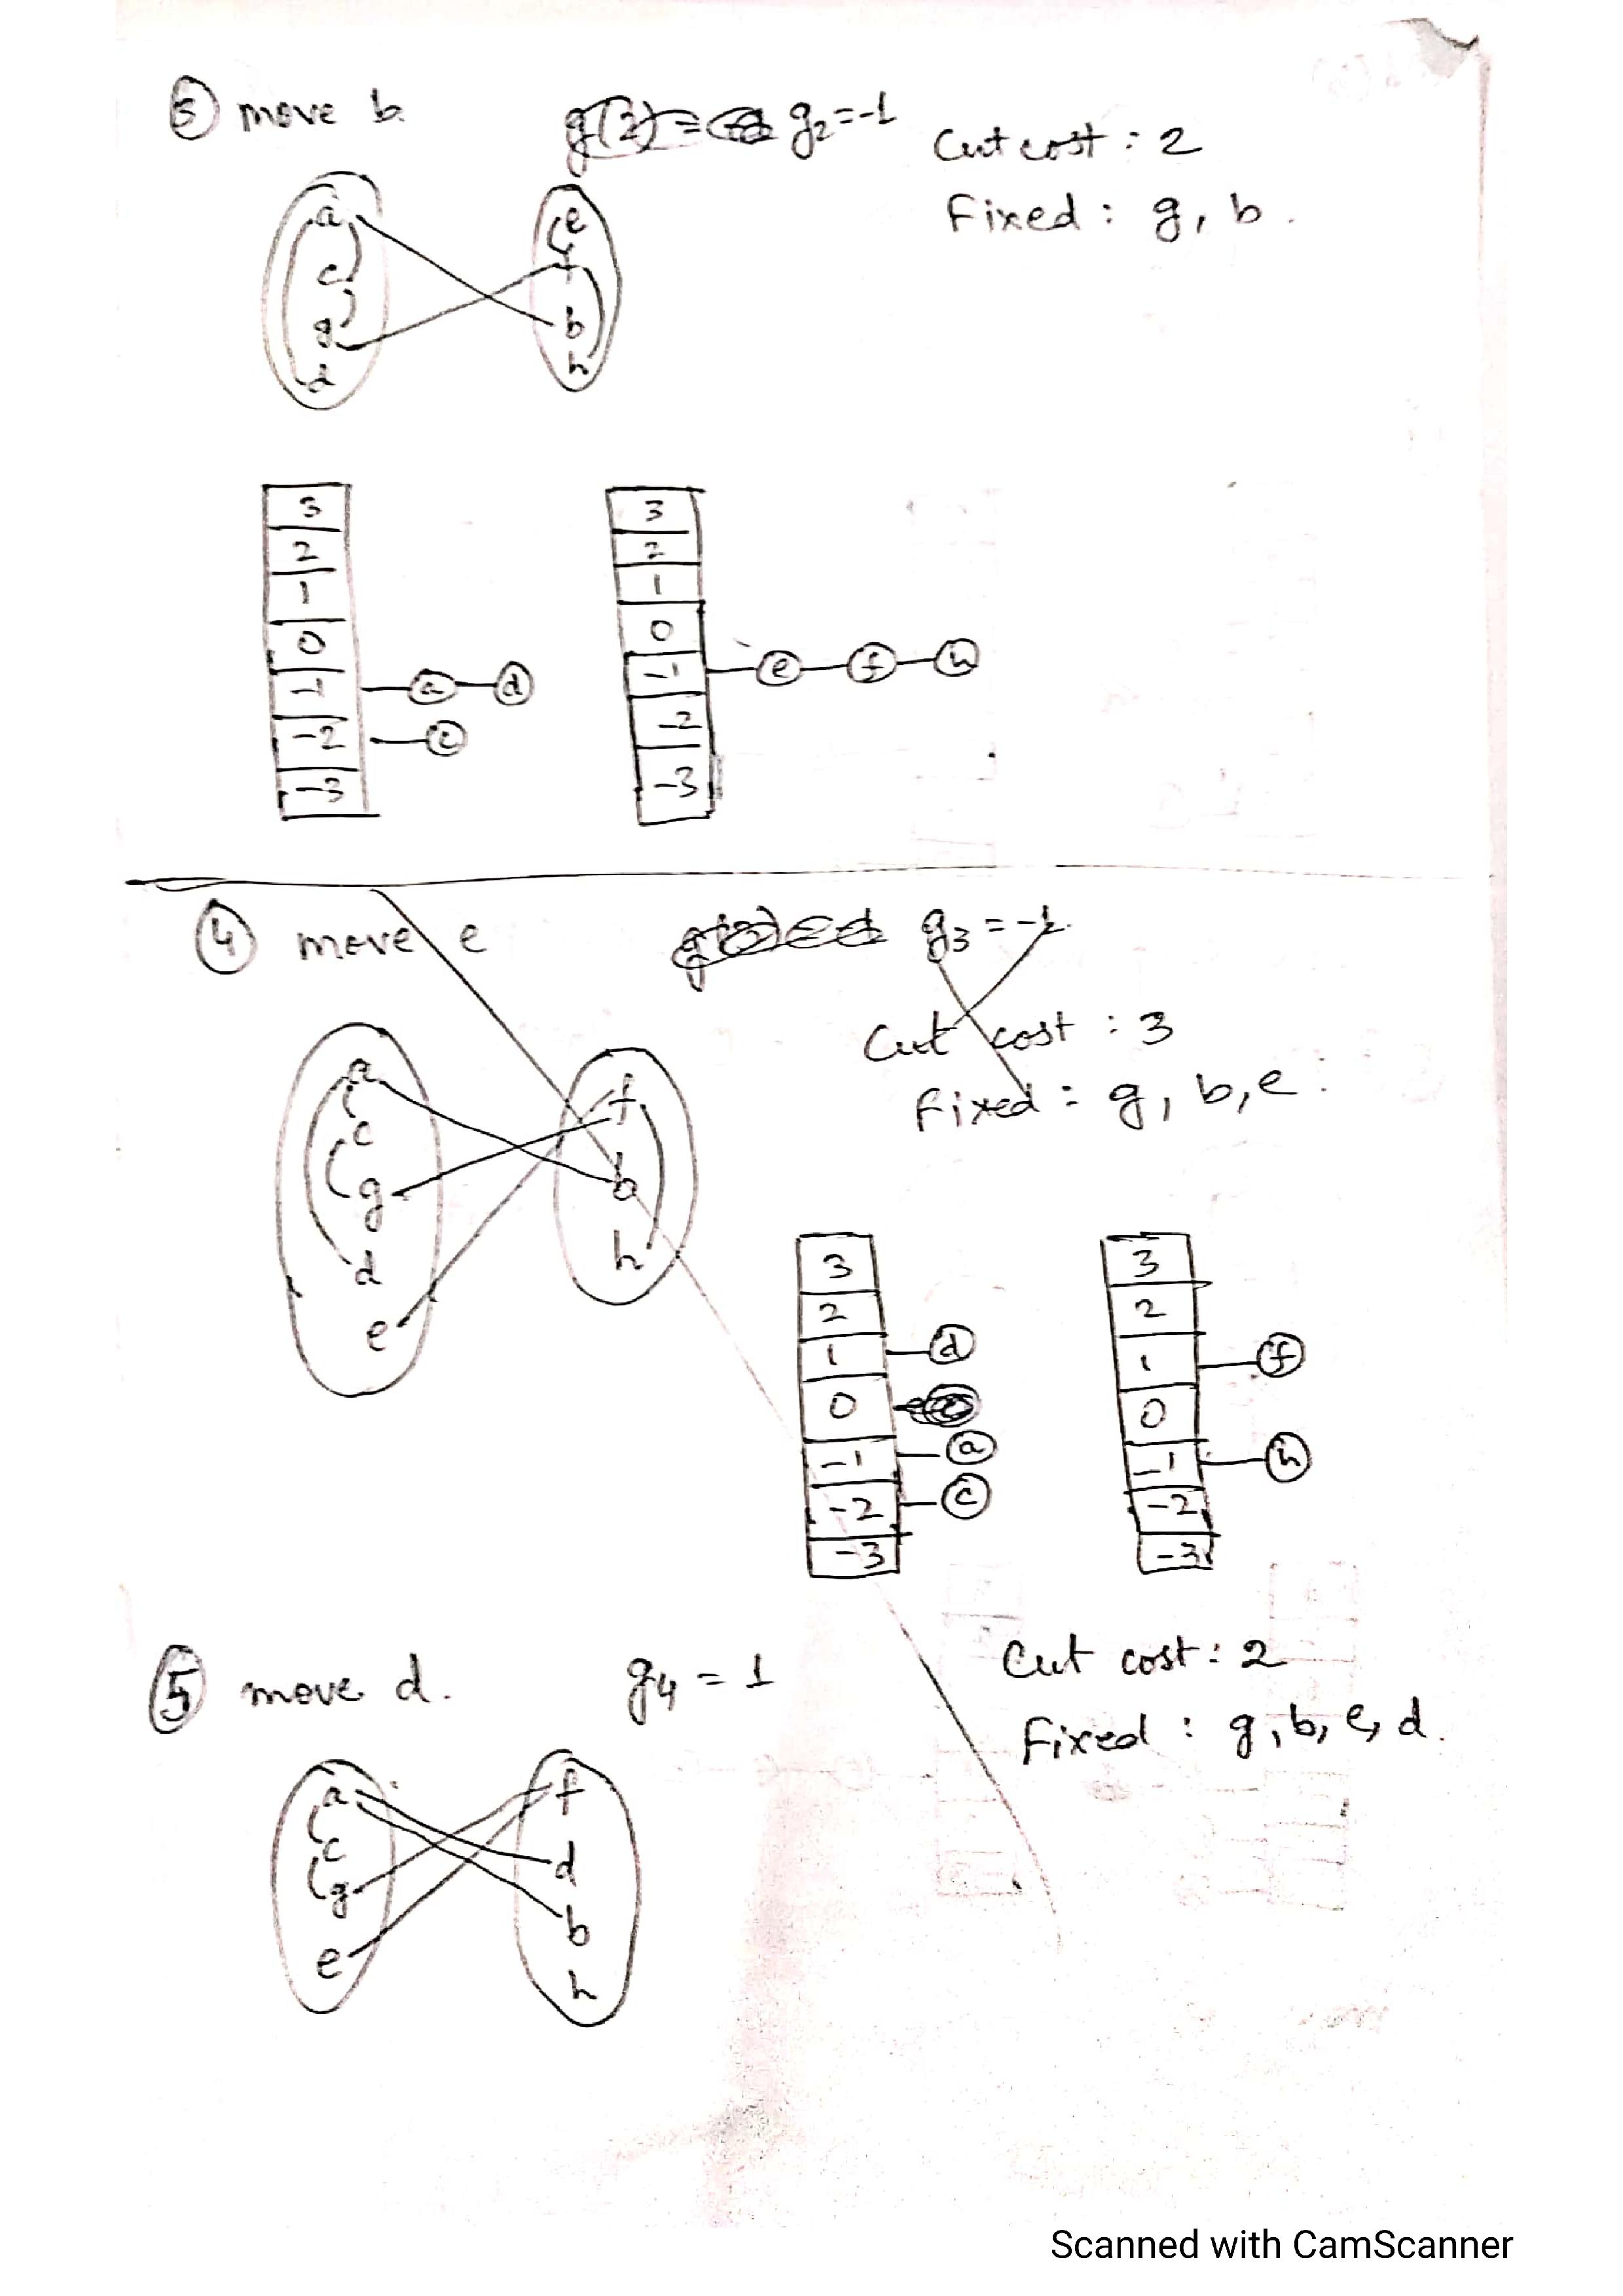 ③ move b. g2=-1
Cut cost : 2
Fixed : g, b.
a
c
g
d
e
f
b
h
3
2
1
0
-1 a d
-2 c
-3
3
2
1
0
-1 e f h
-2
-3
④ move e g3 = -1
Cut cost : 3
Fixed : g, b, e.
a
c
g
d
e
f
b
h
3
2
1 d
0
-1 a
-2 c
-3
3
2
1 f
0
-1 h
-2
-3
⑤ move d. g4 = 1
Cut cost : 2
Fixed : g, b, e, d.
a
c
g
e
f
d
b
h
Scanned with CamScanner